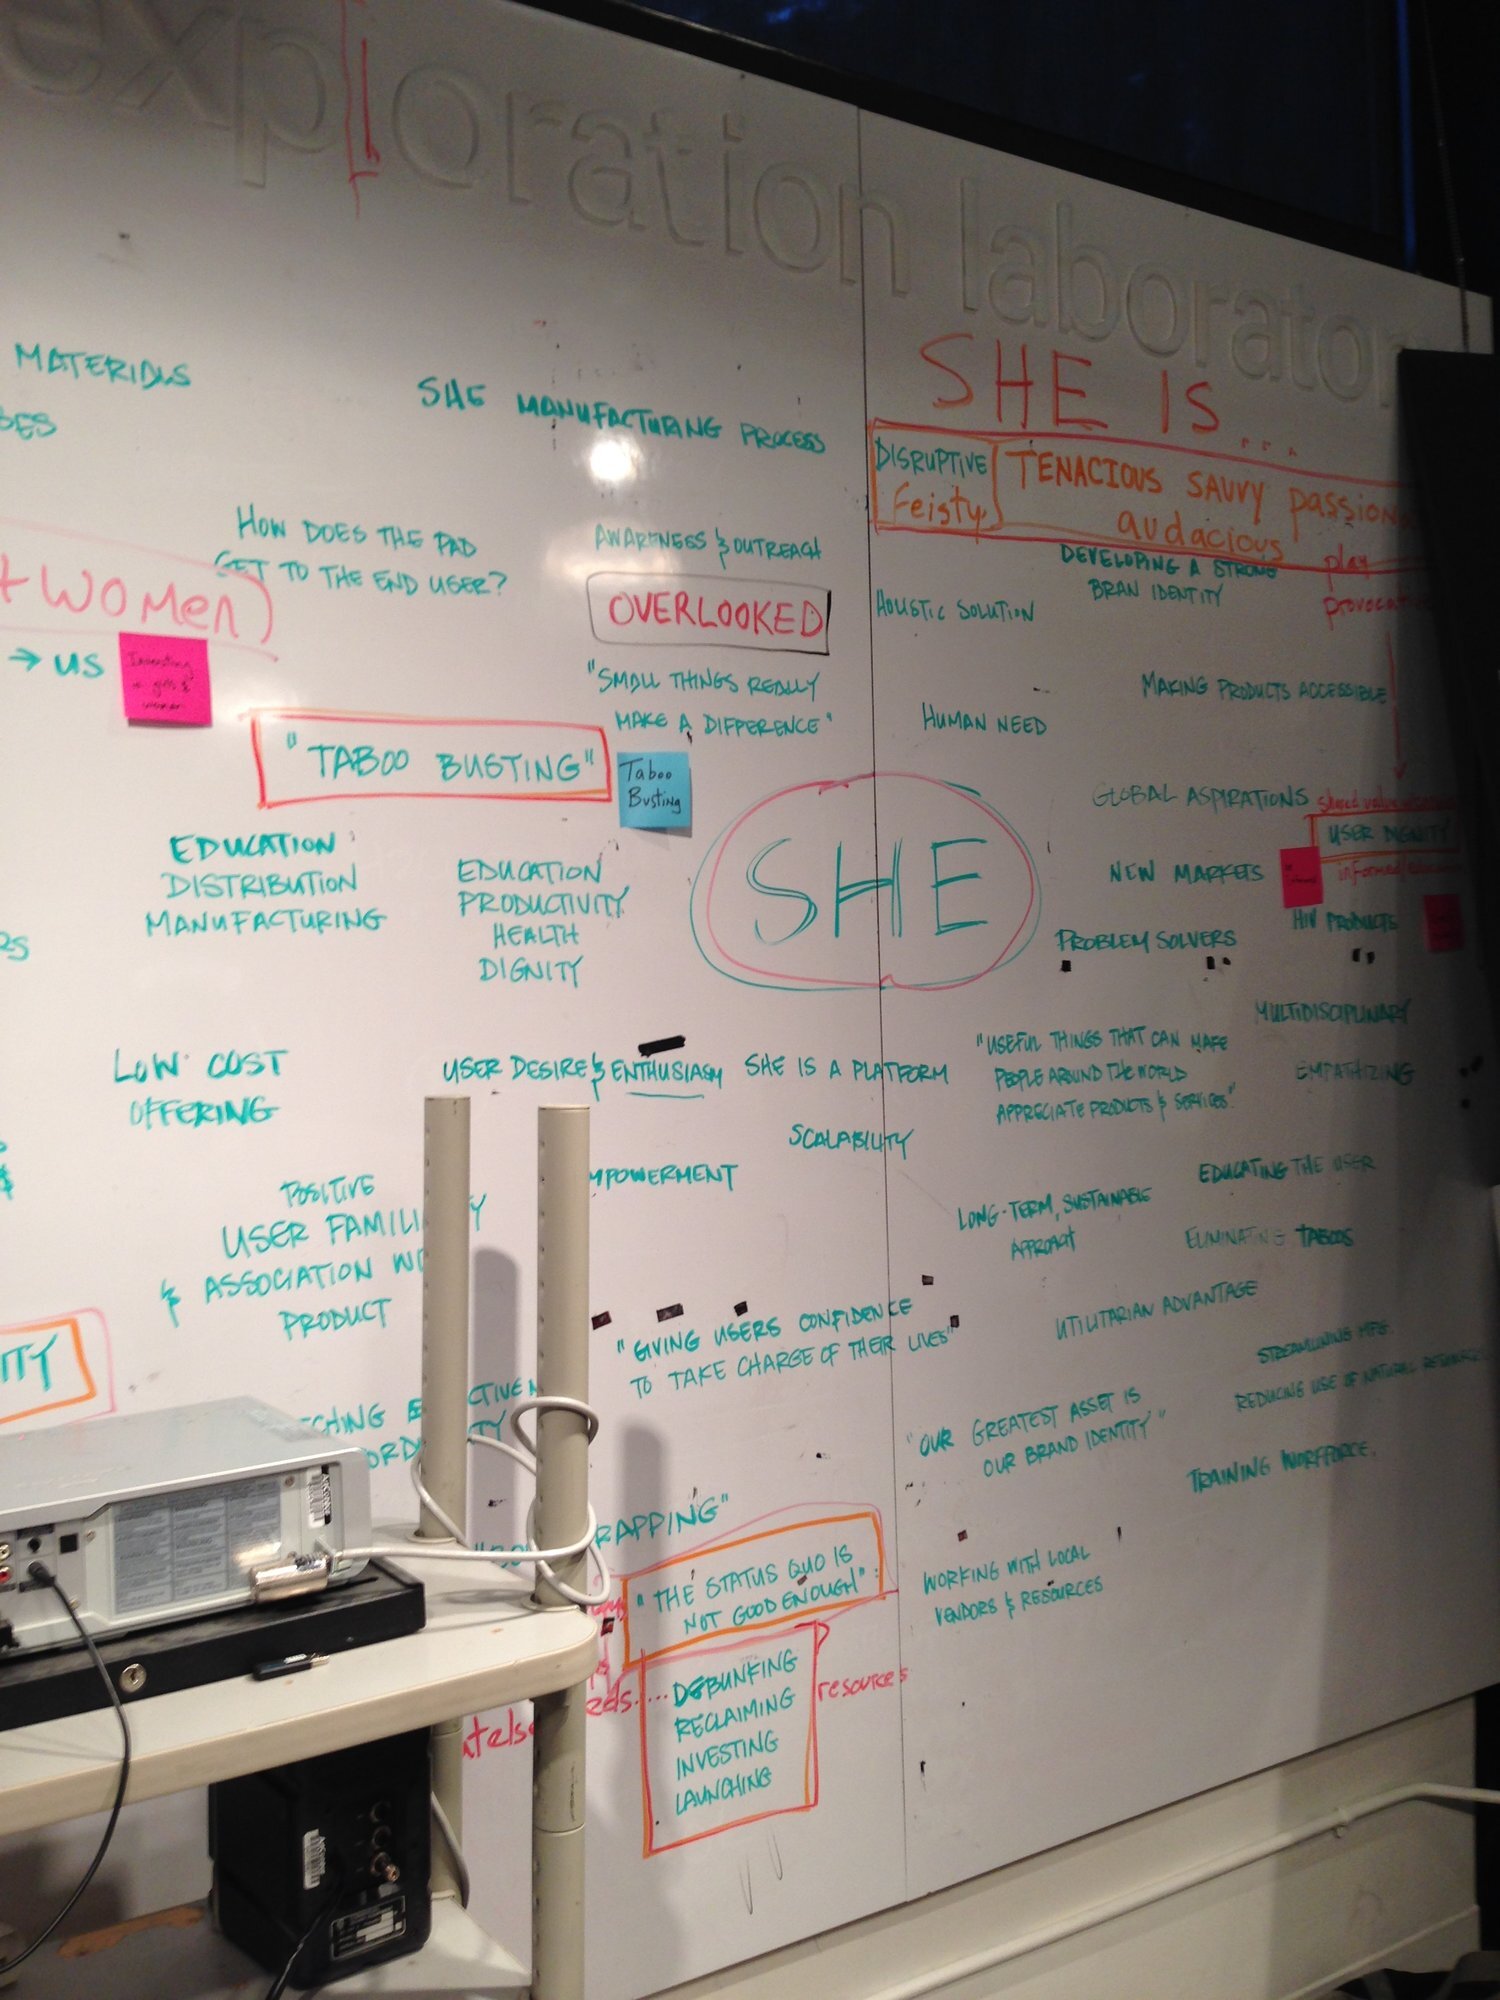 exploration laborator
MATERIALS
SHE MANUFACTURING PROCESS
HOW DOES THE PAD
GET TO THE END USER?
+ WOMen)
→ US
Investing
in girls &
women
"TABOO BUSTING"
Taboo
Busting
EDUCATION
DISTRIBUTION
MANUFACTURING
EDUCATION
PRODUCTIVITY
HEALTH
DIGNITY
AWARENESS & OUTREACH
OVERLOOKED
"SMALL THINGS REALLY
MAKE A DIFFERENCE"
SHE
SHE IS...
DISRUPTIVE
Feisty
TENACIOUS SAVVY passion
audacious
DEVELOPING A STRONG
BRAN IDENTITY
play
HOLISTIC SOLUTION
MAKING PRODUCTS ACCESSIBLE
HUMAN NEED
GLOBAL ASPIRATIONS
shared value
USER DIGNITY
NEW MARKETS
HIV PRODUCTS
PROBLEM SOLVERS
MULTIDISCIPLINARY
"USEFUL THINGS THAT CAN MAKE
PEOPLE AROUND THE WORLD
APPRECIATE PRODUCTS & SERVICES"
EMPATHIZING
LOW COST
OFFERING
USER DESIRE & ENTHUSIASM
SHE IS A PLATFORM
SCALABILITY
MPOWERMENT
EDUCATING THE USER
LONG-TERM, SUSTAINABLE
APPROACH
ELIMINATING TABOOS
POSITIVE
USER FAMILI Y
& ASSOCIATION W
PRODUCT
ITY
UTILITARIAN ADVANTAGE
STREAMLINING MFG.
REDUCING USE OF NATURAL
"GIVING USERS CONFIDENCE
TO TAKE CHARGE OF THEIR LIVES"
"OUR GREATEST ASSET IS
OUR BRAND IDENTITY"
TRAINING WORKFORCE.
RAPPING"
"THE STATUS QUO IS
NOT GOOD ENOUGH"
WORKING WITH LOCAL
VENDORS & RESOURCES
eds....
DEBUNKING
RECLAIMING
INVESTING
LAUNCHING
resources